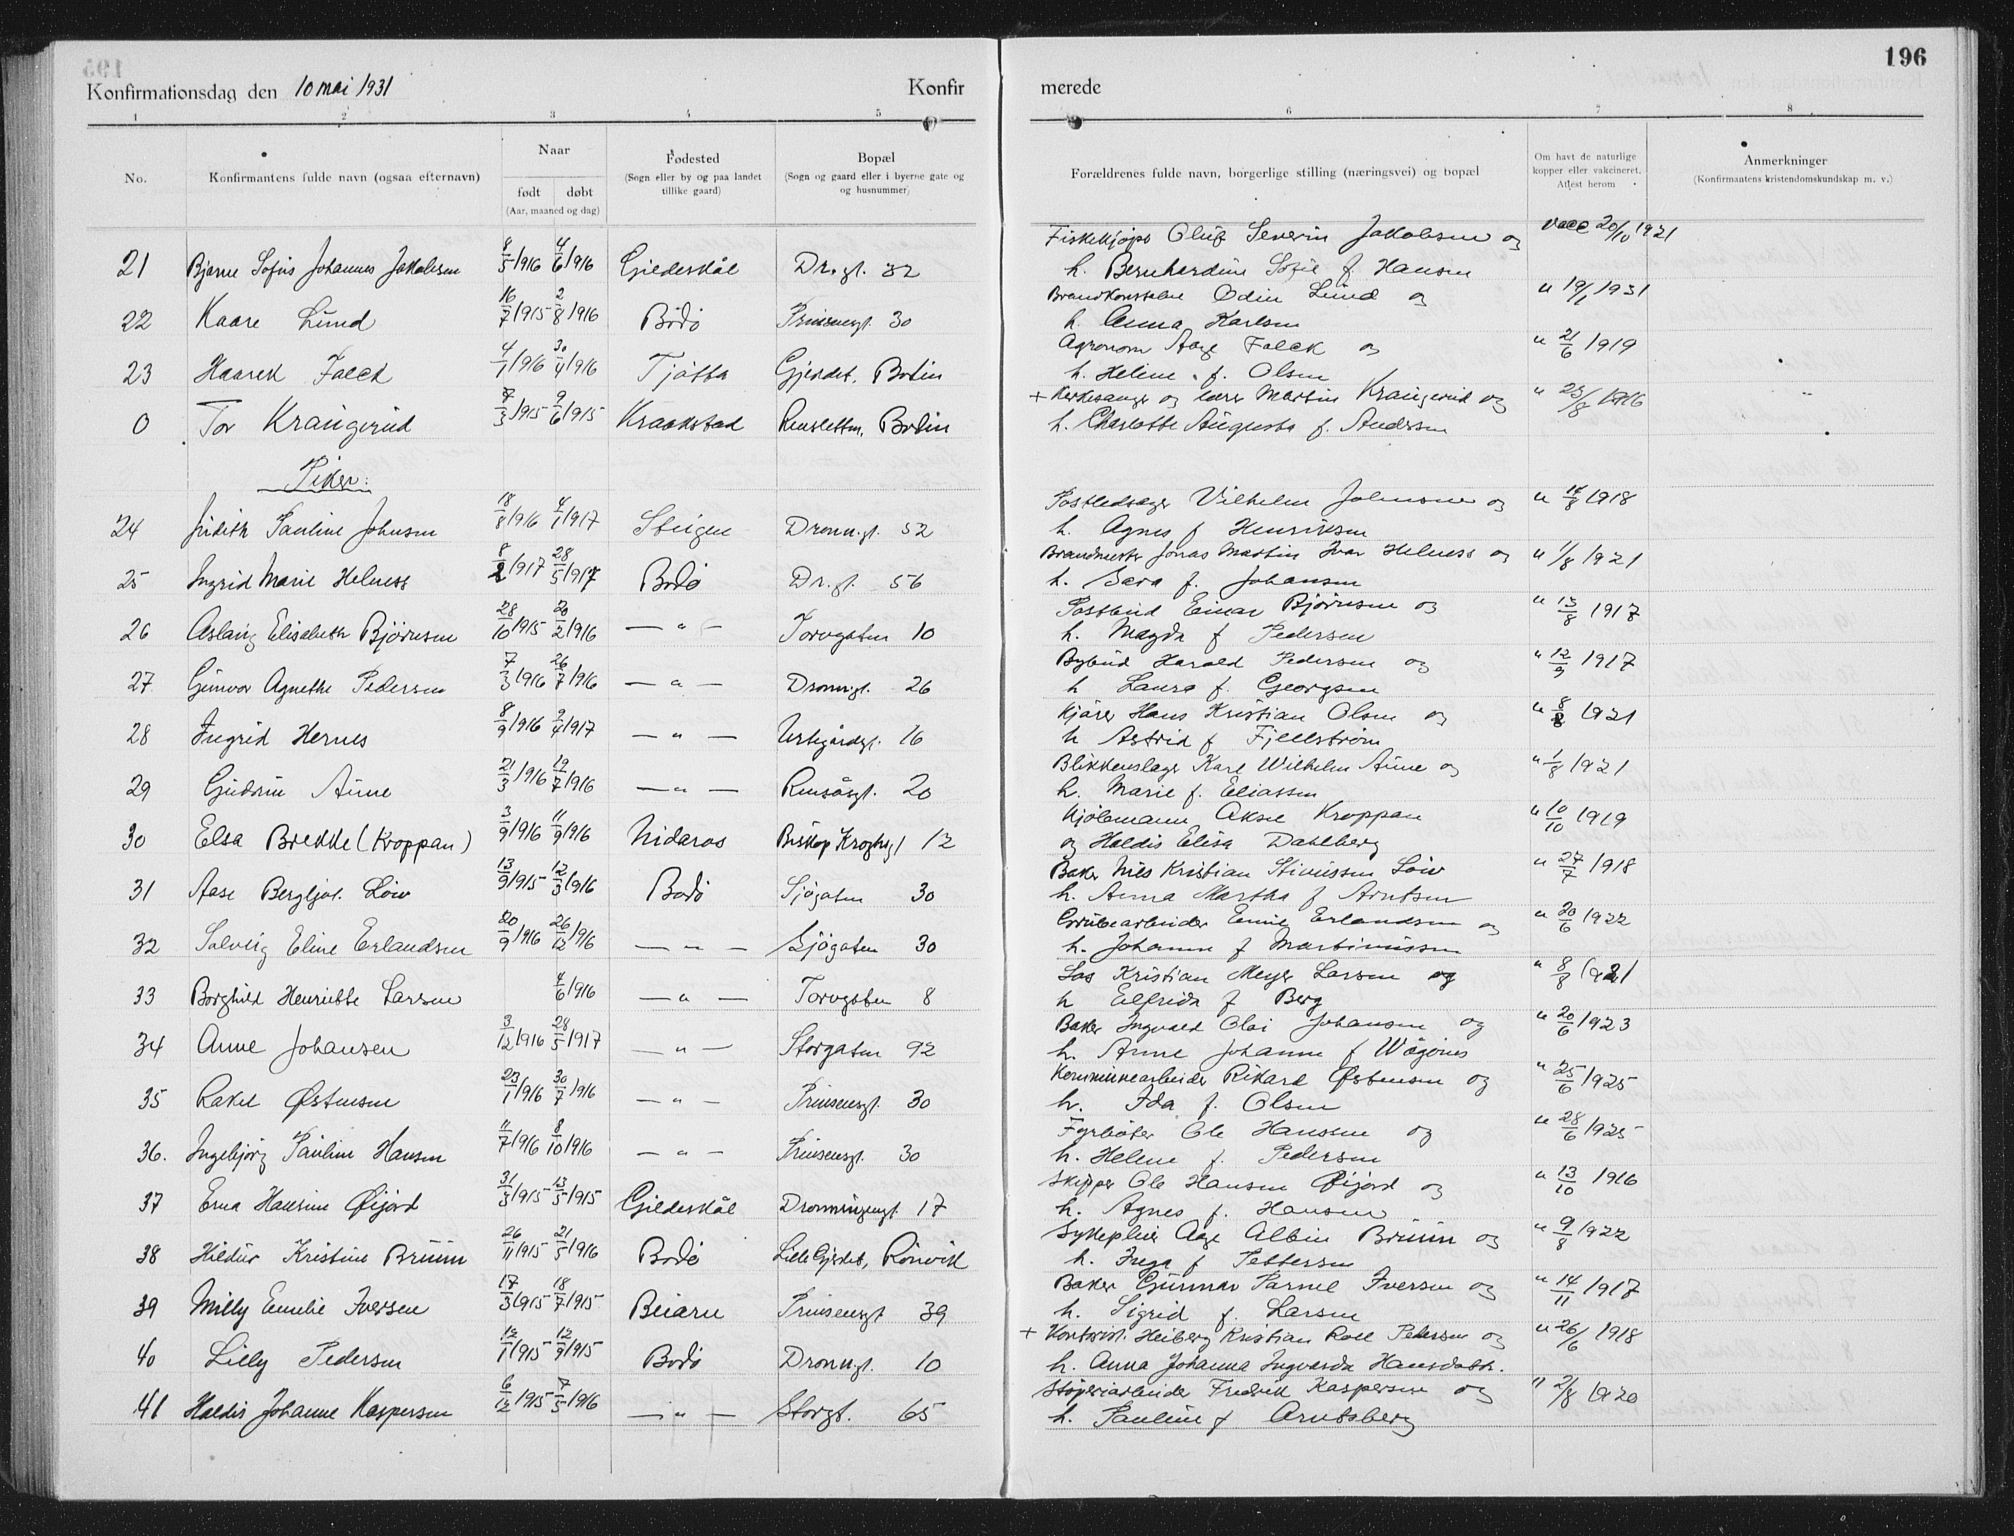 195
196
Konfirmationsdag den 10 mai 1931 Konfir merede
1 2 3 4 5 6 7 8
No. Konfirmantens fulde navn (ogsaa efternavn) Naar født døbt (Aar, maaned og dag) Fødested (Sogn eller by og paa landet tillike gaard) Bopæl (Sogn og gaard eller i byerne gate og og husnummer) Forældrenes fulde navn, borgerlige stilling (næringsvei) og bopæl Om havt de naturlige kopper eller vakcineret. Atlest herom Anmerkninger (Konfirmantens kristendomskundskap m. v.)
21 Bjarne Sofus Johannes Jakobsen 8/5 1916 4/6 1916 Gildeskål Dr.gt. 32 Fiskekjøper Oluf Severin Jakobsen og vacc 20/10 1921
h. Bernhardine Sofie f. Hansen
22 Kaare Lund 16/7 1915 2/8 1916 Bodø Prinsensgt. 30 Brandkonstabel Odin Lund og " 19/1 1931
h. Anna Karlsen
23 Haarek Falck 4/1 1916 30/4 1916 Tjøtta Gjerdet, Bodin Agronom Aage Falck og " 21/6 1919
h. Helene f. Olsen
0 Tor Kraugerud 7/3 1915 9/6 1915 Kraakstad Rensletten, Bodin + Kirkesanger og lærer Martin Kraugerud og " 23/8 1916
h. Charlotte Augusta f. Andersen
Piker:
24 Judith Pauline Johnsen 18/8 1916 4/1 1917 Steigen Dronn.gt. 52 Postledsager Vilhelm Johnsen og " 14/8 1918
h. Agnes f Henriksen
25 Ingrid Marie Helness 8/2 1917 28/5 1917 Bodø Dr.gt. 56 Brandmester Jonas Martin Ivar Helness og " 1/8 1921
h. Sara f. Johansen
26 Aslaug Elisabeth Bjørnsen 28/10 1915 20/2 1916 — " — Torvgaten 10 Postbud Einar Bjørnsen og " 13/8 1917
h. Magda f Pedersen
27 Gunvor Agnethe Pedersen 7/3 1916 26/7 1916 — " — Dronn.gt. 26 Bybud Harald Pedersen og " 12/9 1917
h Laura f. Georgsen
28 Ingrid Hernes 8/9 1916 9/4 1917 — " — 16 Kjører Hans Kristian Olsen og " 8/8 1921
h Astrid f Fjellstrøm
29 Gudrun Aune 21/3 1916 19/7 1916 — " — Rensåsgt. 20 Blikkenslager Karl Wilhelm Aune og " 1/8 1921
h. Marie f. Eliassen
30 Elsa Brekke (Kroppan) 3/9 1916 11/9 1916 Nidaros Biskop Kroghsgt 12 Kjølemann Aksel Kroppan " 10/10 1919
og Haldis Elisa Dahlberg
31 Aase Bergljot. Løiv 13/9 1915 12/3 1916 Bodø Sjøgaten 30 Baker Nils Kristian Løiv " 27/7 1918
h. Anna Martha f Arntsen
32 Solveig Eline Erlandsen 20/9 1916 26/12 1916 — " — Sjøgaten 30 Grubearbeider Emil Erlandsen og " 20/6 1922
h. Johanne f Martinussen
33 Borghild Henriette Larsen 4/6 1916 — " — Torvgaten 8 Los Kristian Meyer Larsen og " 8/8 1921
h Elfrida f Berg
34 Anne Johansen 3/12 1916 28/5 1917 — " — Storgaten 92 Baker Ingvald Olai Johansen og " 20/6 1923
h. Anne Johanne f Wågønes
35 Rakel Østensen 23/1 1916 30/7 1916 — " — Prinsensgt. 30 Kommunearbeider Rikard Østensen og " 25/6 1925
h. Ida f. Olsen
36. Ingebjørg Pauline Hansen 11/7 1916 8/10 1916 — " — Prinsensgt. 30 Fyrbøter Ole Hansen og " 28/6 1925
h. Helene f. Pedersen
37 Erna Hansine Øijord 31/3 1915 13/5 1915 Gildeskål Dronningensgt. 17 Skipper Ole Hansen Øijord og " 13/10 1916
h. Agnes f. Hansen
38 Hildur Kristine Bruun 26/11 1915 21/5 1916 Bodø Lille Gjerdet, Rønvik Sykepleier Aage Albin Bruun og " 9/8 1922
h. Inga f Pettersen
39 Milly Emelie Iversen 17/3 1915 18/7 1915 Beiarn Prinsensgt 39 Baker Gunnar Parnel Iversen og " 14/11 1917
h. Sigrid f. Larsen
40 Lilly Pedersen 12/1 1915 12/9 1915 Bodø Dronn.gt. 10 + Kontorist. Heiberg Kristian Roll Pedersen og " 26/6 1918
h. Anna Johanna Ingvarda Hansdatter.
41 Haldis Johanne Kaspersen 6/12 1915 7/5 1916 — " — Storgt. 65 Støperiarbeider Fredrik Kaspersen og " 2/8 1920
h. Pauline f Arntsberg